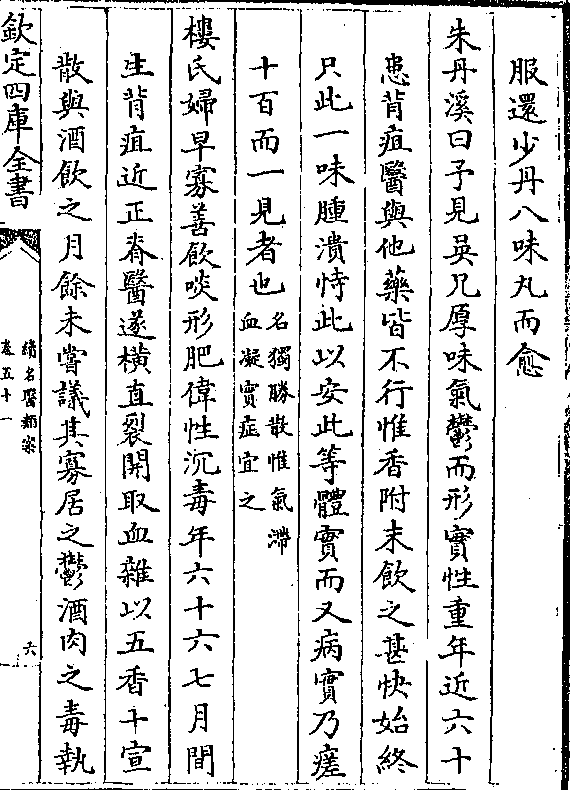 服還少丹八味丸而愈
朱丹溪曰予見吳兄厚味氣鬱而形實性重年近六十
患背疽醫與他藥皆不行惟香附末飲之甚快始終
只此一味腫潰恃此以安此等體實而又病實乃瘥
十百而一見者也名獨勝散惟氣滯
血凝實症宜之
樓氏婦早寡善飲啖形肥偉性沉毒年六十六七月間
生背疽近正脊醫遂橫直裂開取血雜以五香十宣
散與酒飲之月餘未嘗議其寡居之鬱酒肉之毒執
欽定四庫全書
續名醫類案
卷五十一
六